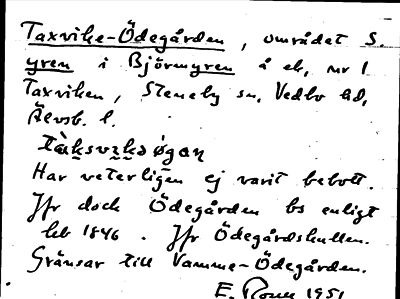 Taxvike-Ödegården, området S.
gren i Björmyren å ek, nr 1
Taxviken, Steneby sn, Vedbo hd,
Älvsb. l.
Har veterligen ej varit bebott.
Jfr dock Ödegården bs enligt
leb 1846. Jfr Ödegårdskullen.
Gränsar till Vamme-Ödegården.
E. 1951